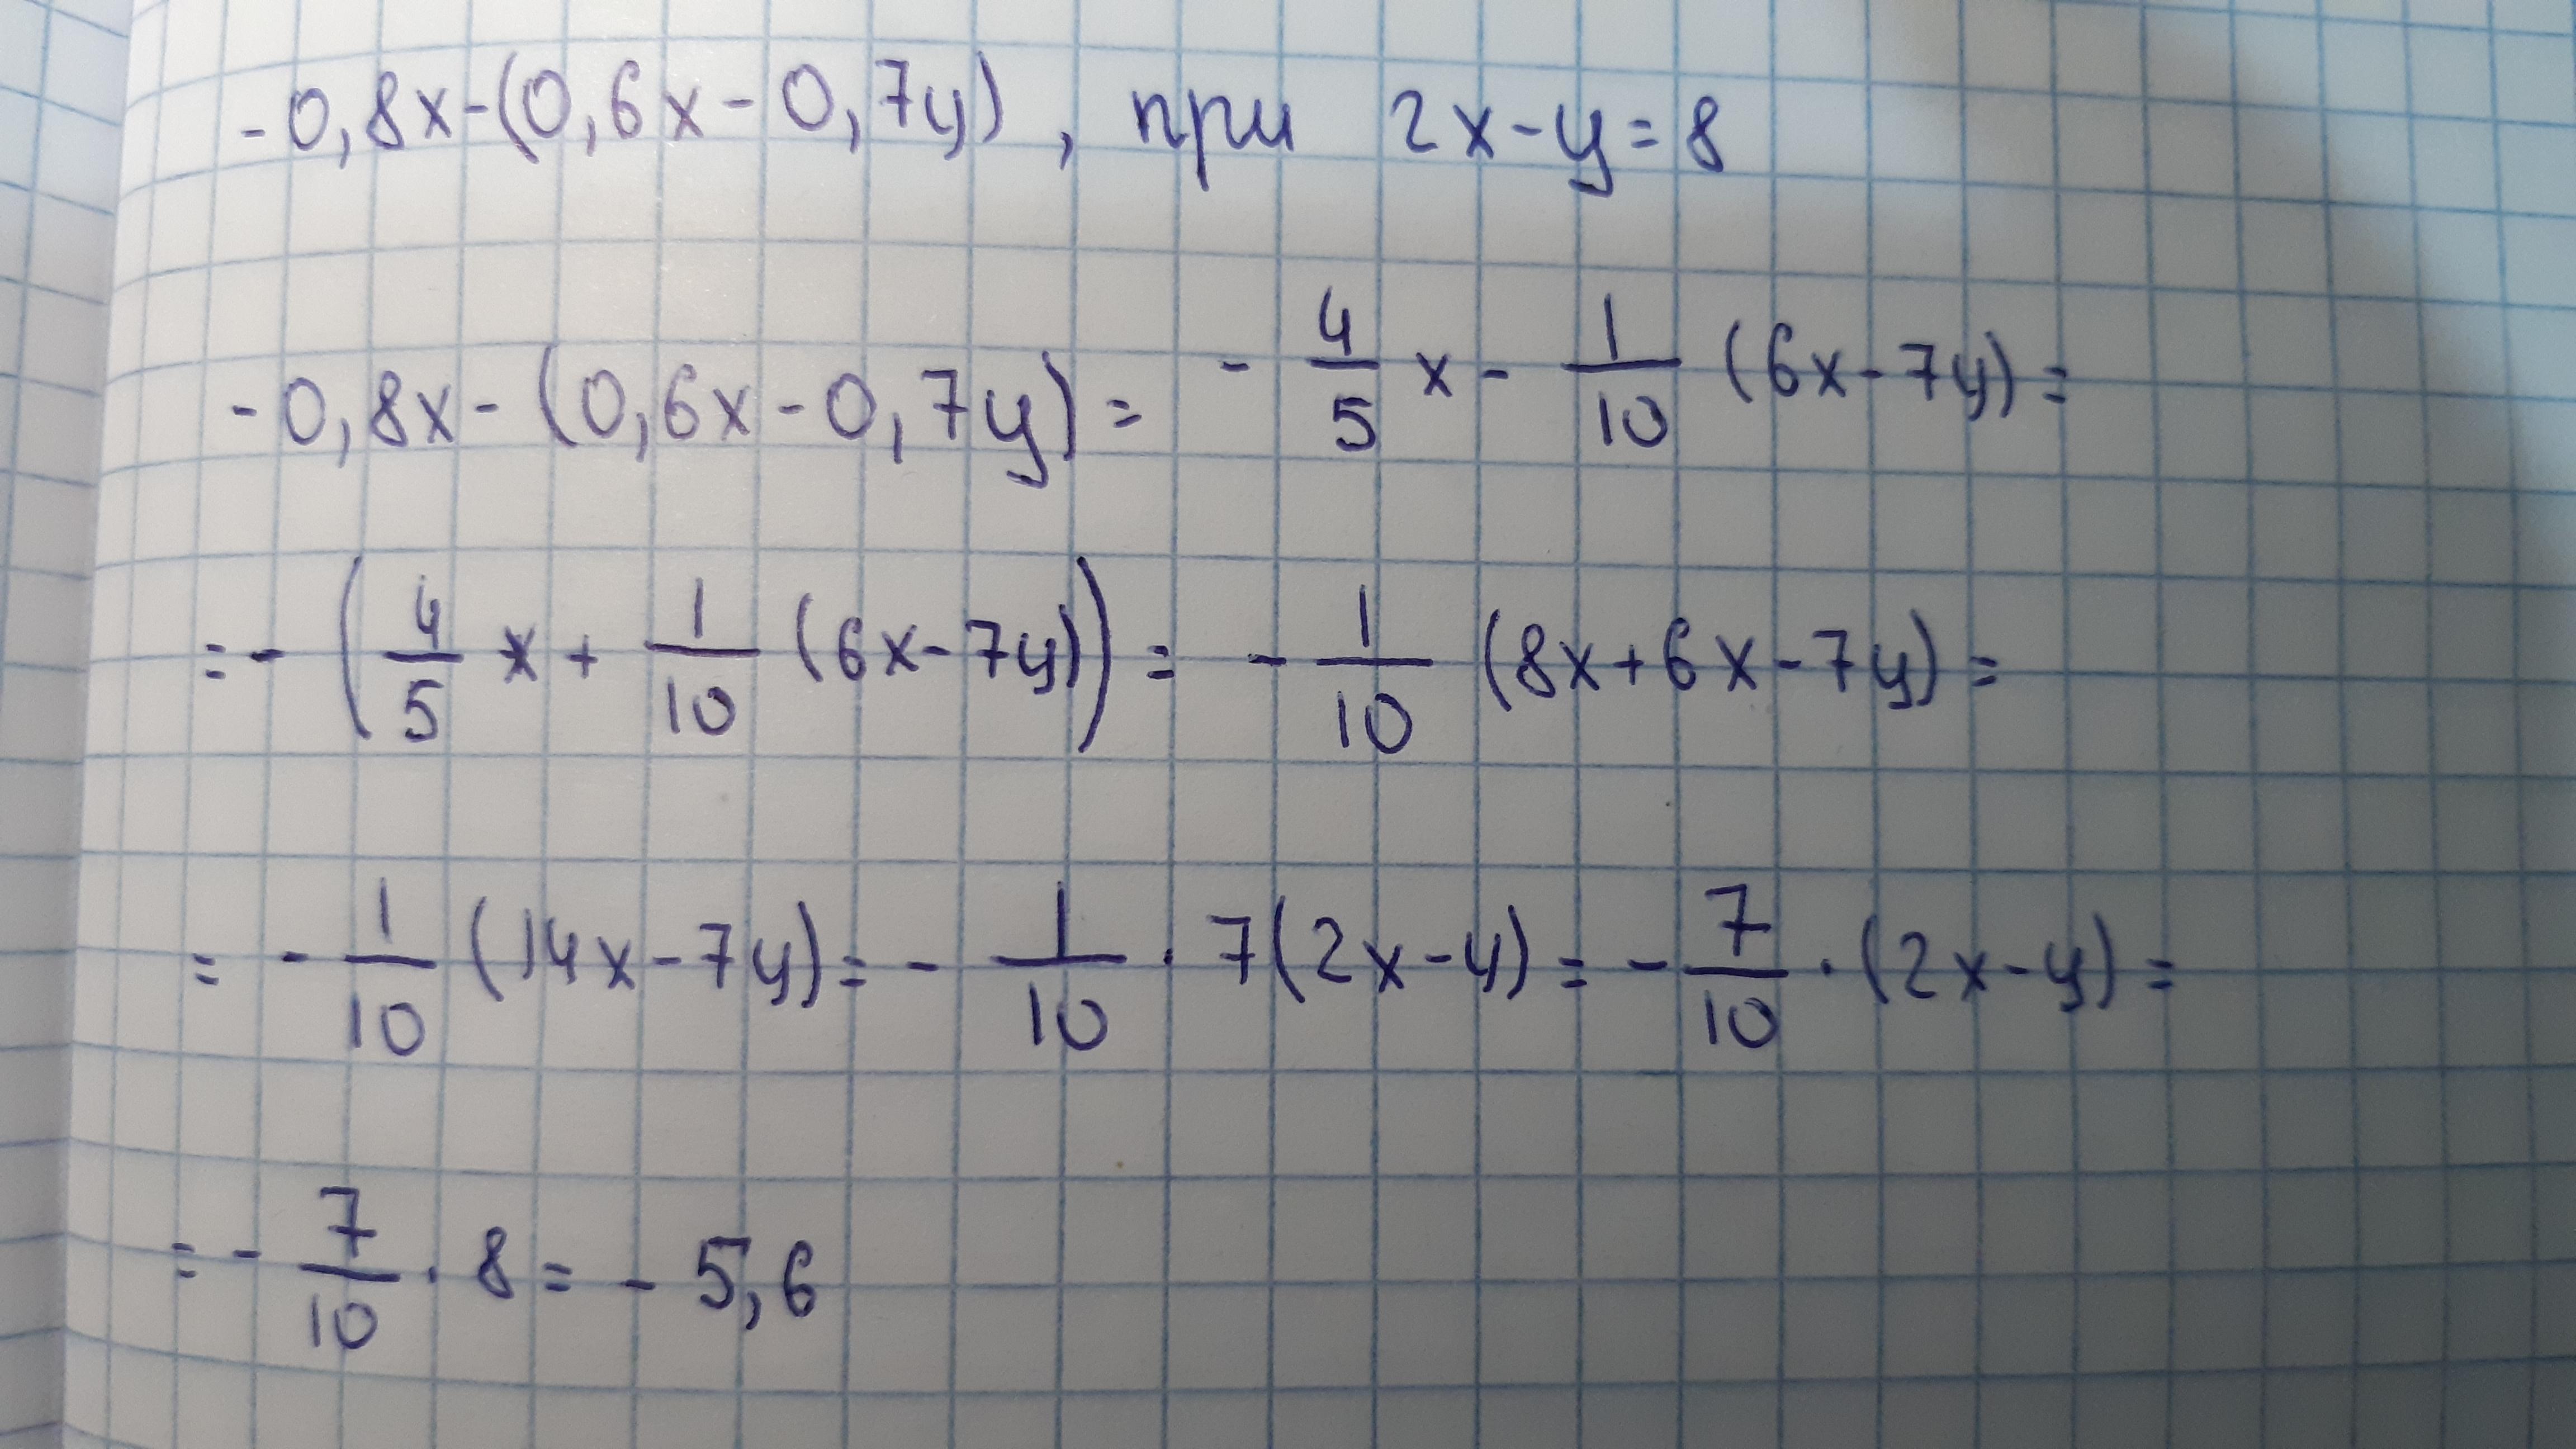 -0,8x-(0,6x-0,7y), при 2x-y=8
-0,8x-(0,6x-0,7y)= -4/5 x - 1/10 (6x-7y)=
=-(4/5 x + 1/10 (6x-7y))= -1/10 (8x+6x-7y)=
= -1/10 (14x-7y)= -1/10 · 7(2x-y)= -7/10 · (2x-y)=
= -7/10 · 8= -5,6